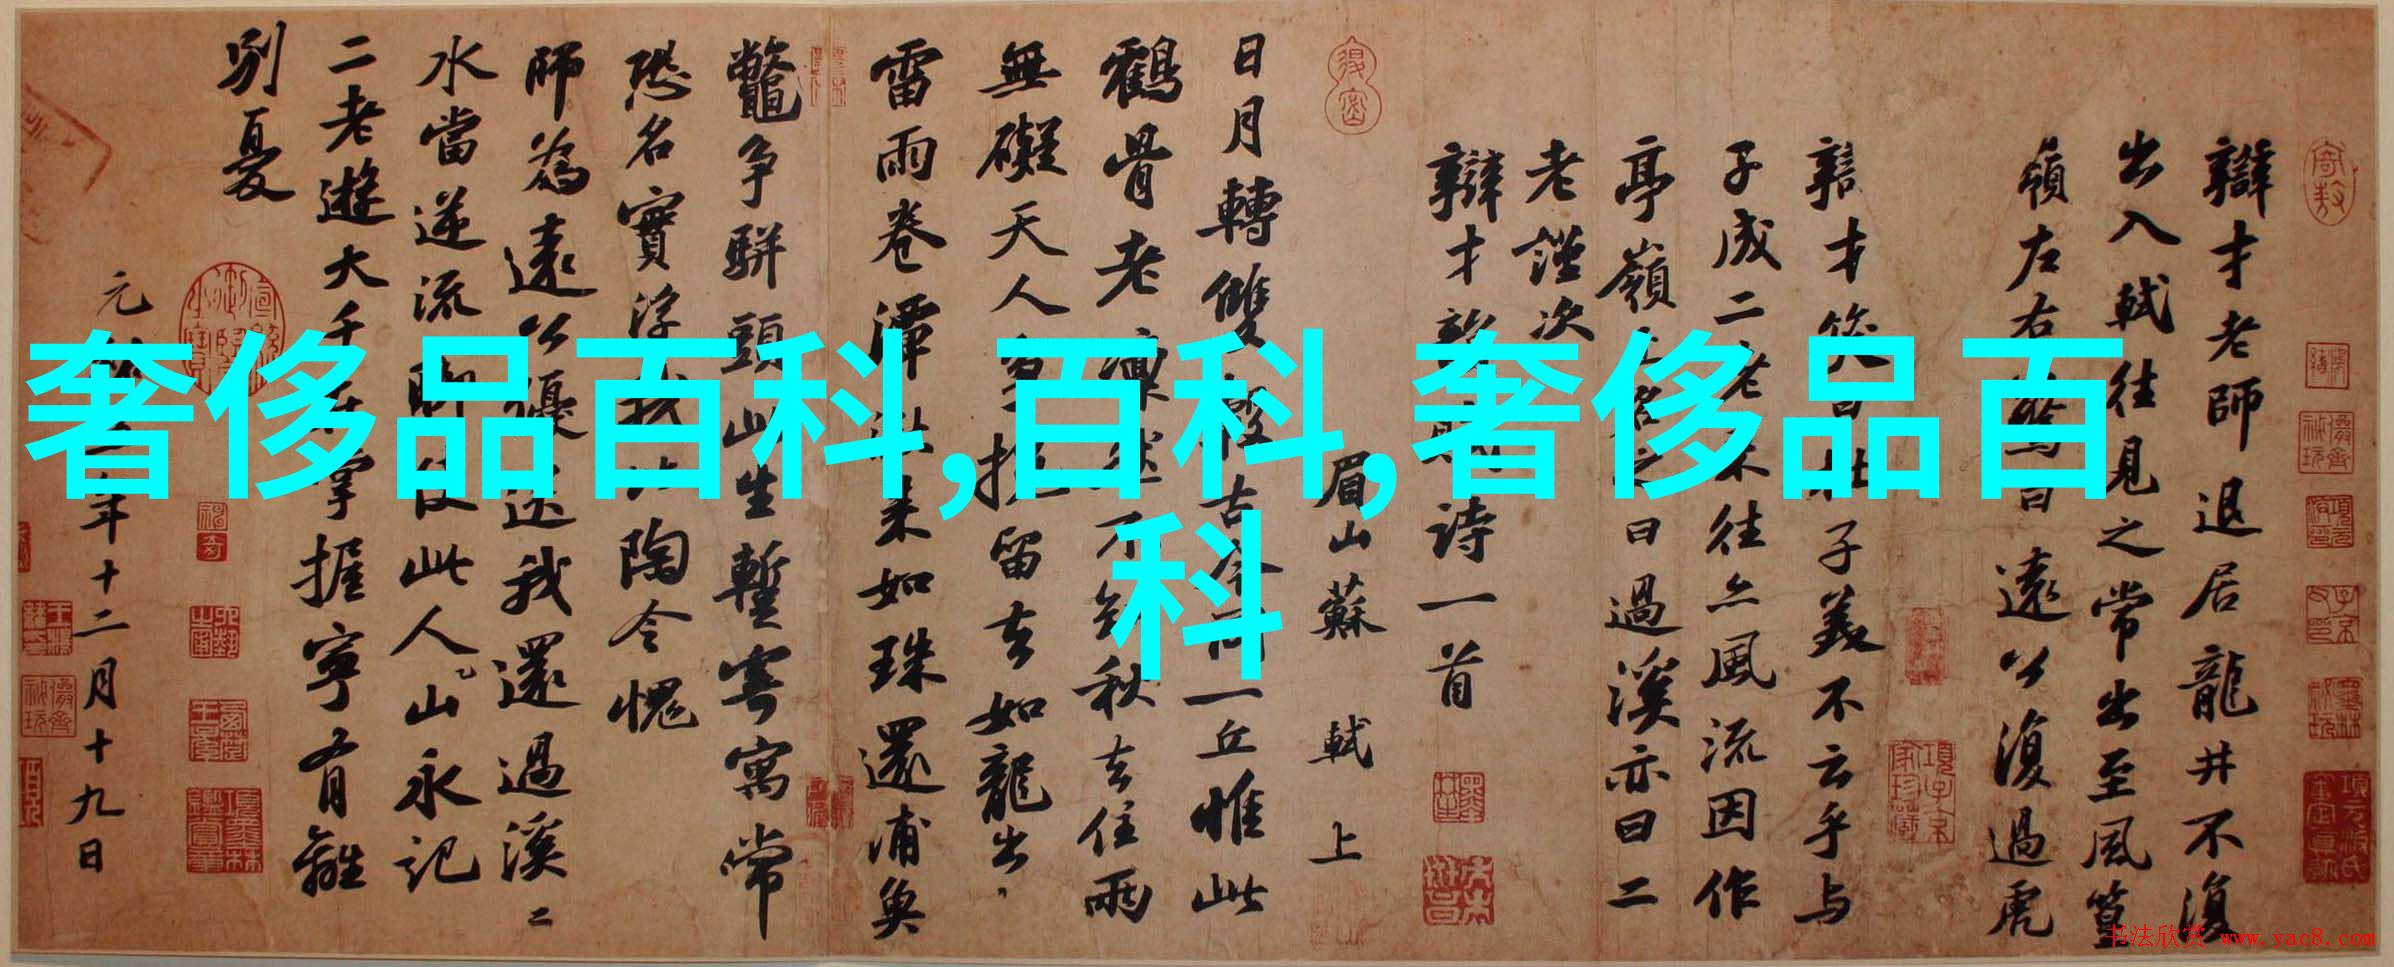 奢侈品百科,百科,奢侈品百
科
辯才老師退居龍井不復
出入軾往見之常出至風篁
嶺左右驚曰遠公復過虎
辯才笑曰杜子美不云乎与
子成二老來往亦風流因作
亭嶺上名之曰過溪亦曰二
老謹次
辯才韻賦詩一首
眉山蘇軾上
日月轉雙轂古今同一丘惟此
鶴骨老凜然不知秋去住兩
無礙天人爭挽留去如龍出
雷雨卷潭湫來如珠還浦魚
鼈爭駢頭此生暫寄寓常
恐名實浮我比陶令愧
師為遠公優送我還過溪二
水當逆流聊使此人山永記
二老遊大千在掌握寧有離
別憂
元祐五年十二月十九日
书法欣赏 www.yac8.com